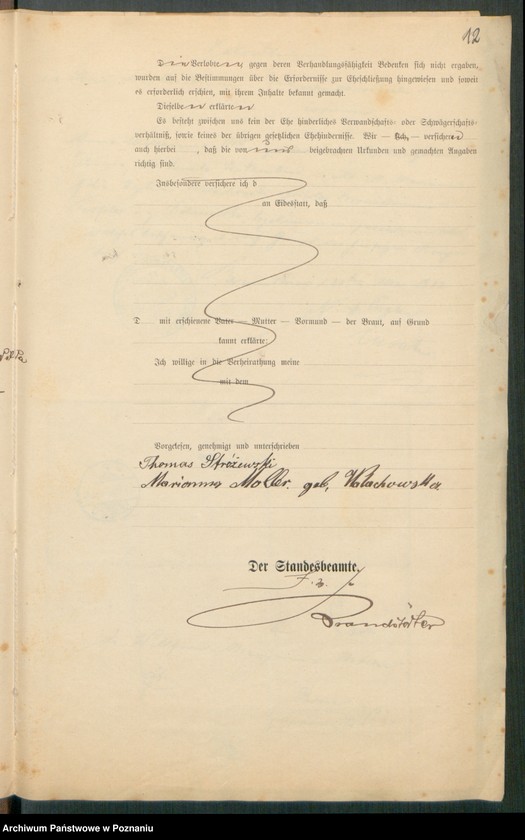 12
Die Verlobten gegen deren Verhandlungsfähigkeit Bedenken sich nicht ergaben,
wurden auf die Bestimmungen über die Erfordernisse zur Eheschließung hingewiesen und soweit
es erforderlich erschien, mit ihrem Inhalte bekannt gemacht.
Dieselben erklären
Es besteht zwischen uns kein der Ehe hinderliches Verwandschafts- oder Schwägerschafts-
verhältniß, sowie keines der übrigen gesetzlichen Ehehindernisse. Wir — Ich, — versichern
auch hierbei , daß die von uns beigebrachten Urkunden und gemachten Angaben
richtig sind.
Insbesondere versichere ich d
an Eidesstatt, daß
D mit erschienene Vater — Mutter — Vormund — der Braut, auf Grund
kannt erklärte:
Ich willige in die Verheirathung meine
mit dem
Vorgelesen, genehmigt und unterschrieben
Thomas Stróżewski
Marianna Moller. geb. Wlachowska
Der Standesbeamte.
Brandstädter
Archiwum Państwowe w Poznaniu